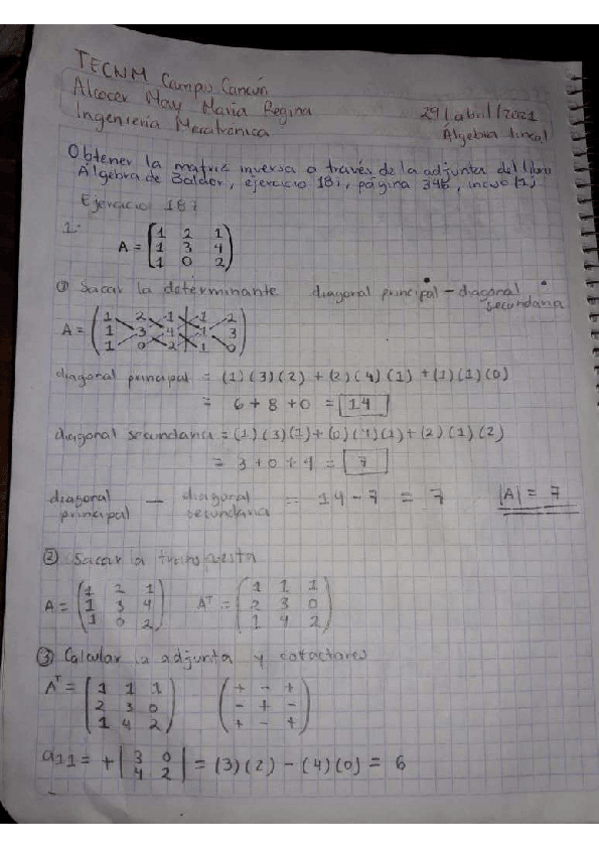 TECNM Campus Cancún
Alcocer May Maria Regina
Ingeniería Mecatrónica
29/abril/2021
Álgebra lineal
Obtener la matriz inversa a través de la adjunta del libro
Álgebra de Baldor, ejercicio 187, página 346, inciso (1)
Ejercicio 187
1.
A = (1 2 1
1 3 4
1 0 2)
① Sacar la determinante diagonal principal - diagonal secundaria
A = (1 2 1 | 1 2
1 3 4 | 1 3
1 0 2 | 1 0)
diagonal principal = (1)(3)(2) + (2)(4)(1) + (1)(1)(0)
= 6 + 8 + 0 = 14
diagonal secundaria = (1)(3)(1) + (0)(4)(1) + (2)(1)(2)
= 3 + 0 + 4 = 7
diagonal principal - diagonal secundaria = 14 - 7 = 7 |A| = 7
② Sacar la transpuesta
A = (1 2 1 Aᵀ = (1 1 1
1 3 4 2 3 0
1 0 2) 1 4 2)
③ Calcular la adjunta y cofactores
Aᵀ = (1 1 1 (+ - +
2 3 0 - + -
1 4 2) + - +)
a11 = + |3 0
4 2| = (3)(2) - (4)(0) = 6